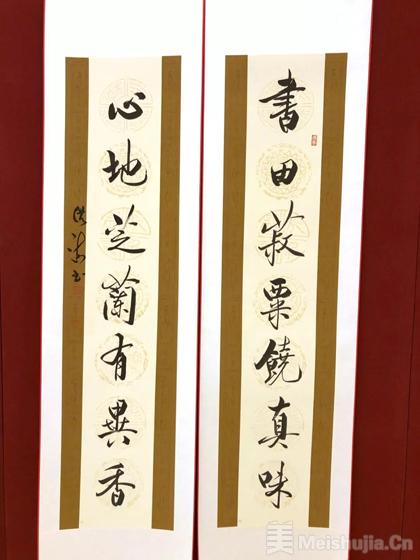 書田菽粟饒真味
心地芝蘭有異香
美 Meishujia.Cn